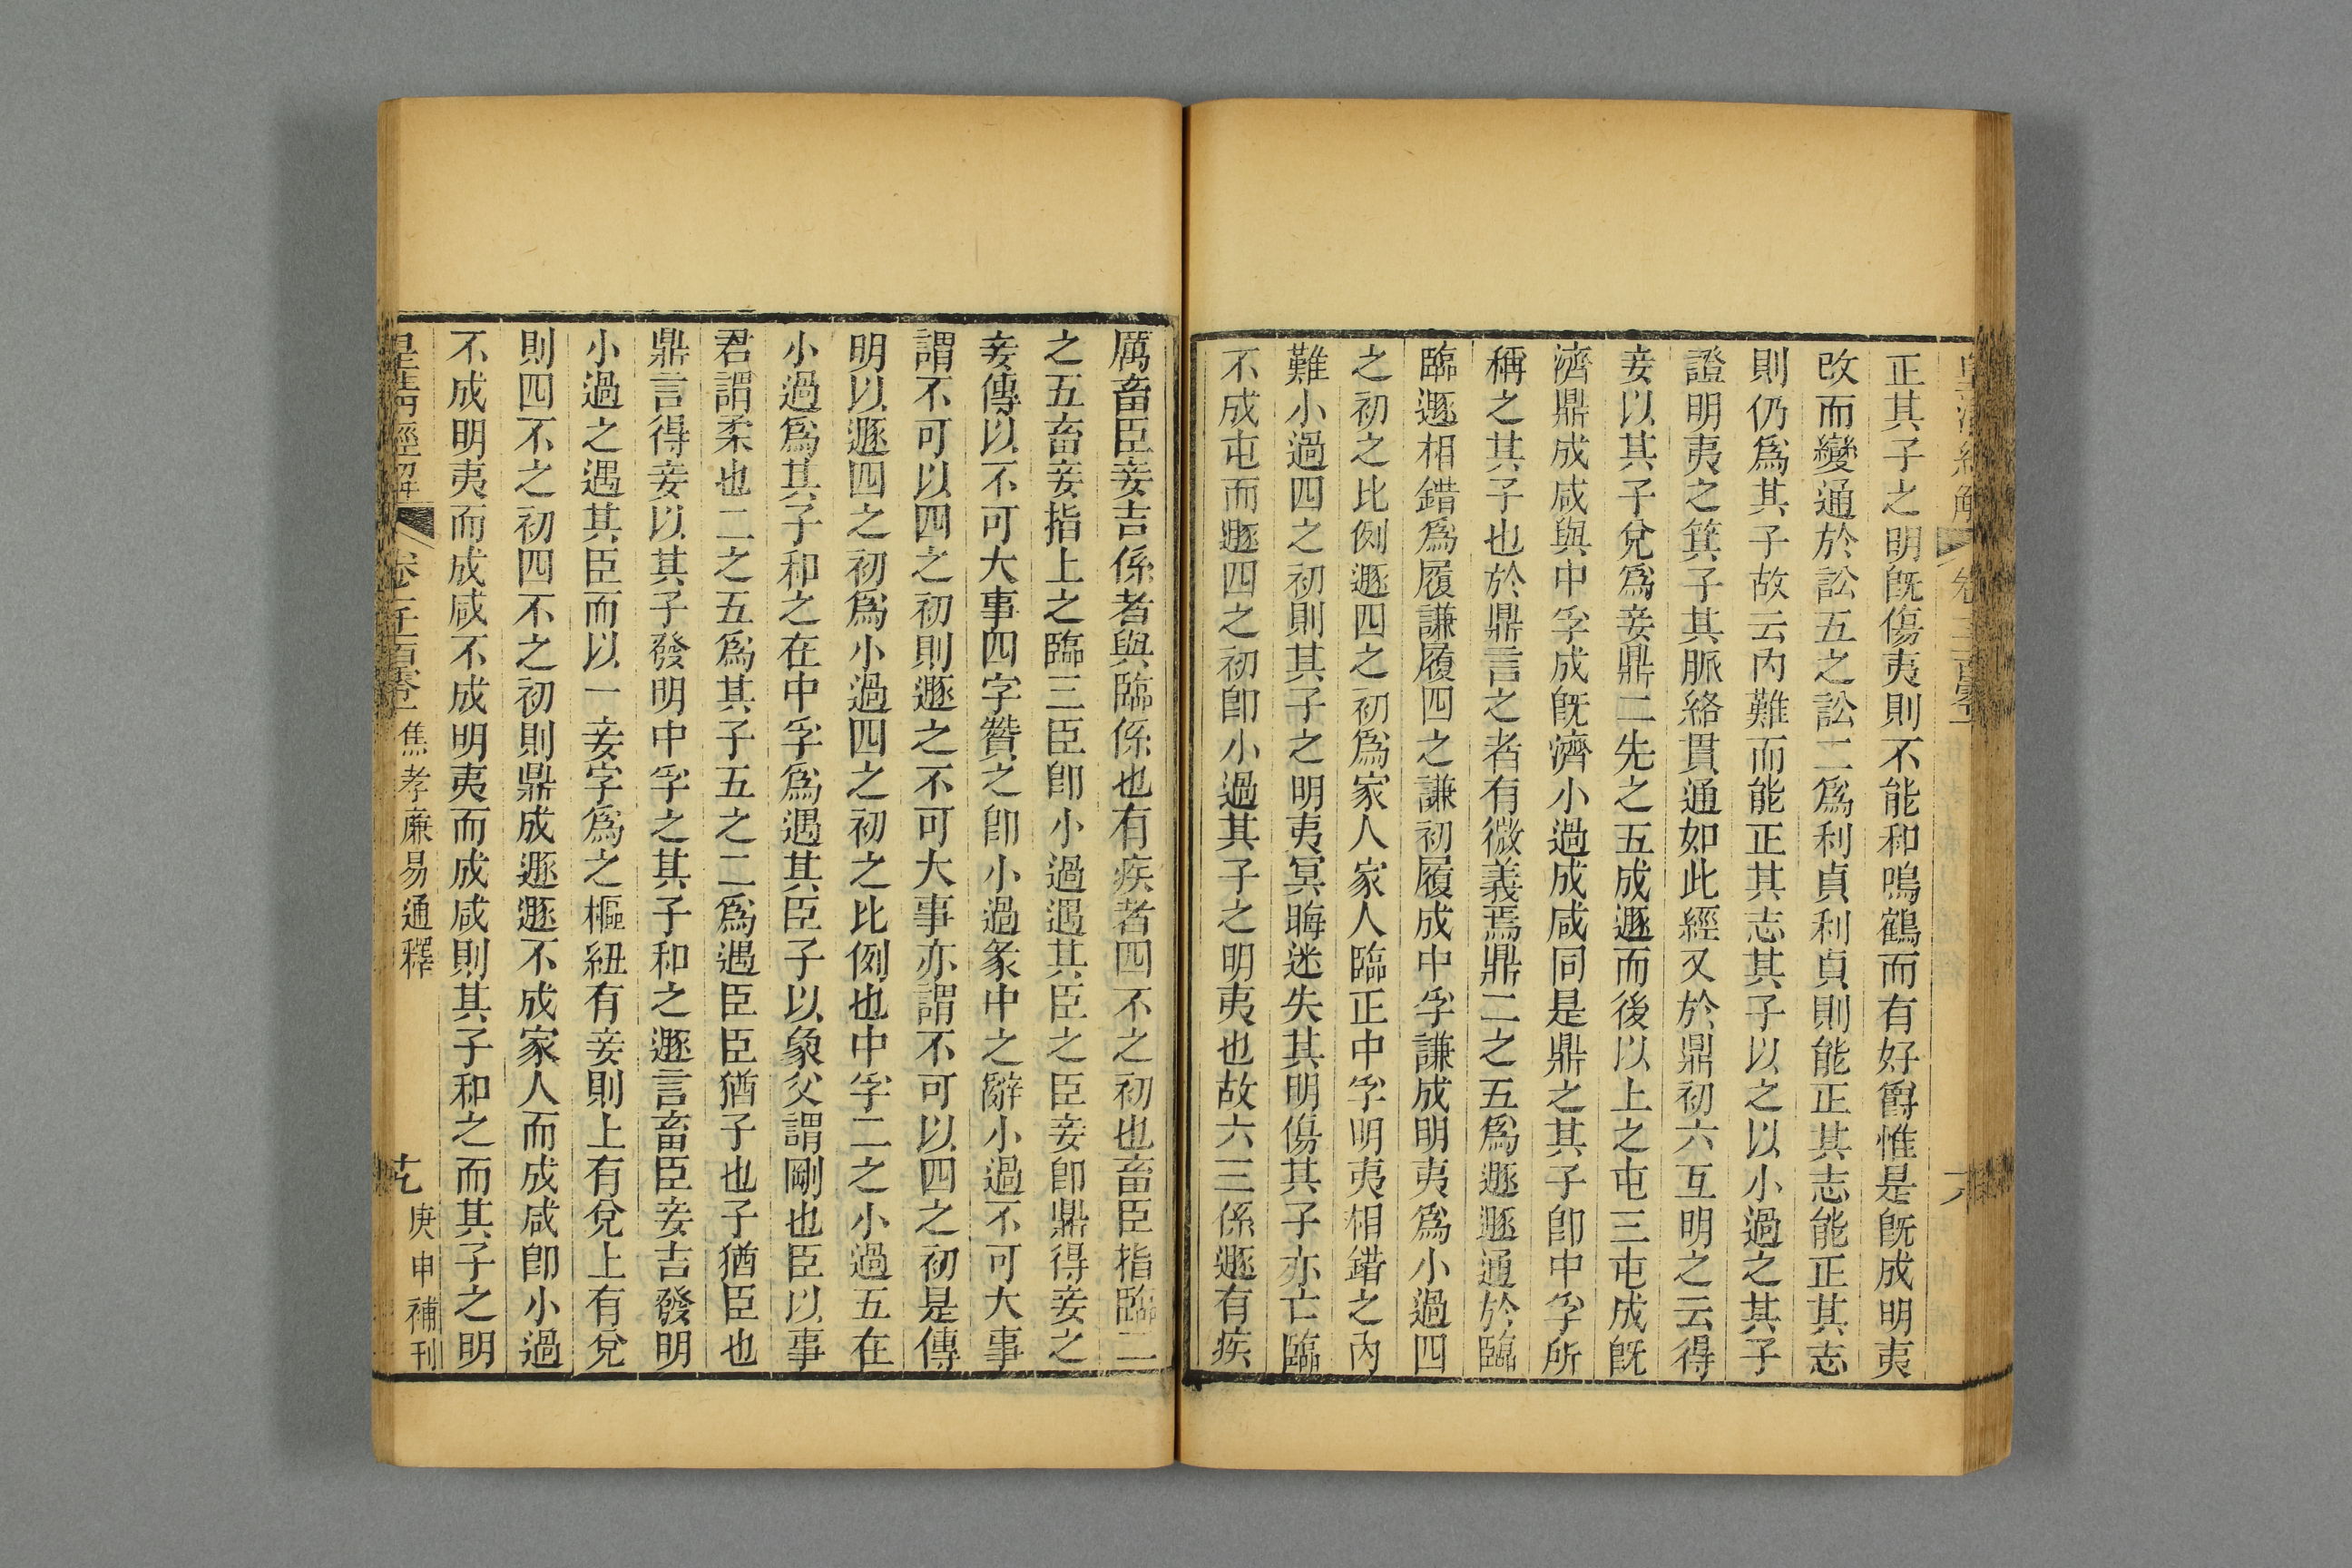 皇清經解 卷一千一百零一
六
正其子之明旣傷夷則不能和鳴鶴而有好爵惟是旣成明夷
改而變通於訟五之訟二爲利貞利貞則能正其志能正其志
則仍爲其子故云內難而能正其志其子以之以小過之其子
證明夷之箕子其脈絡貫通如此經又於鼎初六互明之云得
妾以其子兌爲妾鼎二先之五成遯而後以上之屯三屯成旣
濟鼎成咸與中孚成旣濟小過成咸同是鼎之其子卽中孚所
稱之其子也於鼎言之者有微義焉鼎二之五爲遯遯通於臨
臨遯相錯爲履謙履四之謙初履成中孚謙成明夷爲小過四
之初之比例遯四之初爲家人家人臨正中孚明夷相錯之內
難小過四之初則其子之明夷冥晦迷失其明傷其子亦亡臨
不成屯而遯四之初卽小過其子之明夷也故六三係遯有疾
厲畜臣妾吉係者與臨係也有疾者四不之初也畜臣指臨二
之五畜妾指上之臨三臣卽小過遇其臣之臣妾卽鼎得妾之
妾傳以不可大事四字贊之卽小過彖中之辭小過不可大事
謂不可以四之初則遯之不可大事亦謂不可以四之初是傳
明以遯四之初爲小過四之初之比例也中孚二之小過五在
小過爲其子和之在中孚爲遇其臣子以象父謂剛也臣以事
君謂柔也二之五爲其子五之二爲遇臣臣猶子也子猶臣也
鼎言得妾以其子發明中孚之其子和之遯言畜臣妾吉發明
小過之遇其臣而以一妾字爲之樞紐有妾則上有兌上有兌
則四不之初四不之初則鼎成遯遯不成家人而成咸卽小過
不成明夷而成咸不成明夷而成咸則其子和之而其子之明
皇清經解 卷一千一百零一 焦孝廉易通釋
庚申補刊